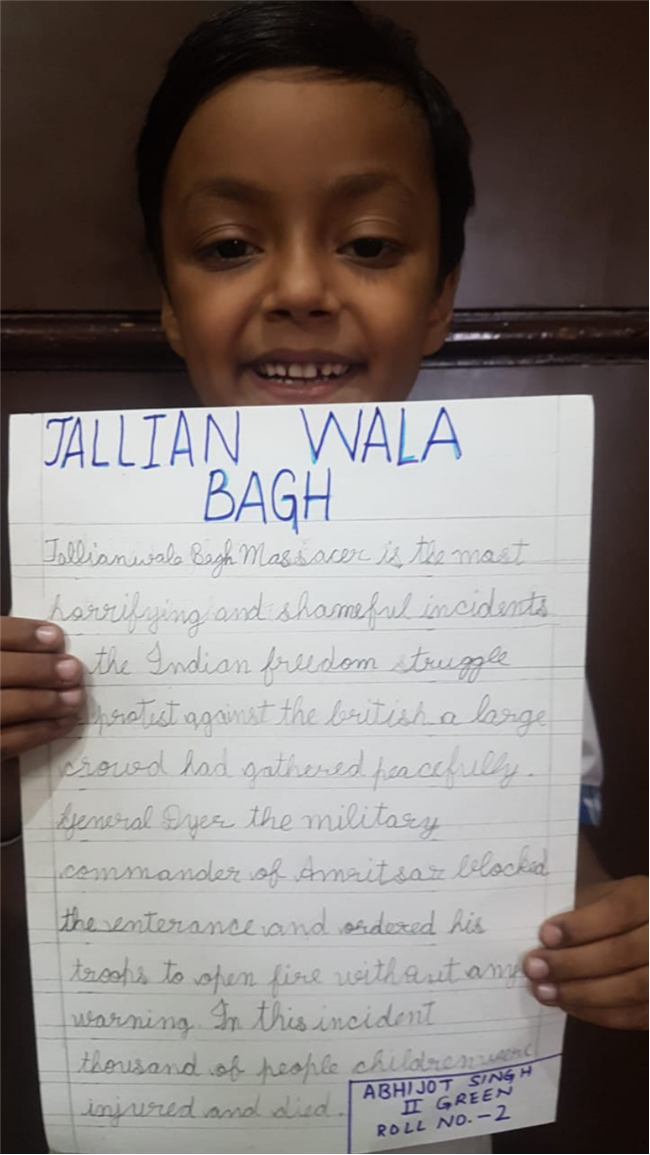 JALLIAN WALA
BAGH
Jallianwala Bagh Massacer is the most
horrifying and shameful incidents
the Indian freedom struggle
protest against the british a large
crowd had gathered peacefully.
General Dyer the military
commander of Amritsar blocked
the enterance and ordered his
troops to open fire without any
warning. In this incident
thousand of people children were
injured and died.
ABHIJOT SINGH
II GREEN
ROLL NO.-2